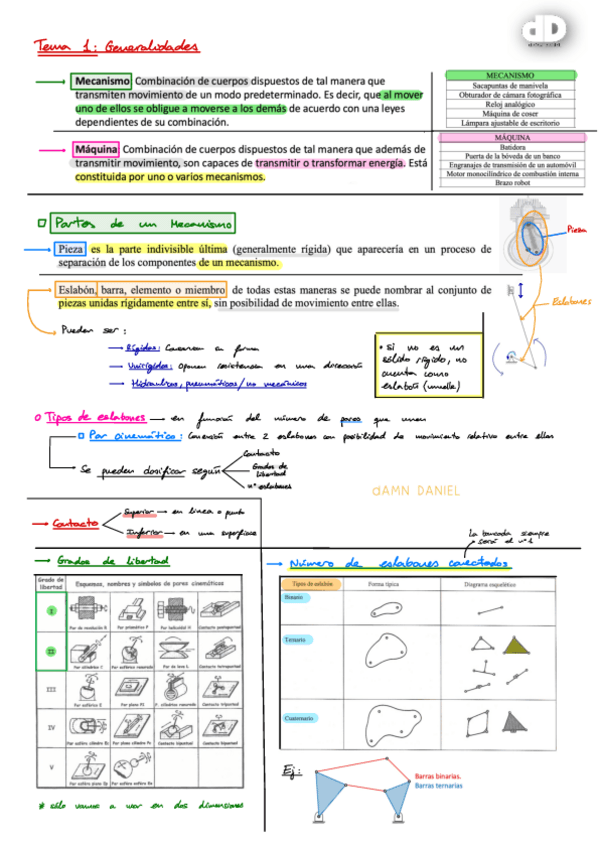 dD
Tema 1: Generalidades
Mecanismo Combinación de cuerpos dispuestos de tal manera que
transmiten movimiento de un modo predeterminado. Es decir, que al mover
uno de ellos se obligue a moverse a los demás de acuerdo con una leyes
dependientes de su combinación.
MECANISMO
Sacapuntas de manivela
Obturador de cámara fotográfica
Reloj analógico
Máquina de coser
Lámpara ajustable de escritorio
Máquina Combinación de cuerpos dispuestos de tal manera que además de
transmitir movimiento, son capaces de transmitir o transformar energía. Está
constituida por uno o varios mecanismos.
MÁQUINA
Batidora
Puerta de la bóveda de un banco
Engranajes de transmisión de un automóvil
Motor monocilíndrico de combustión interna
Brazo robot
Partes de un Mecanismo
Pieza es la parte indivisible última (generalmente rígida) que aparecería en un proceso de
separación de los componentes de un mecanismo.
Pieza
Eslabón, barra, elemento o miembro de todas estas maneras se puede nombrar al conjunto de
piezas unidas rígidamente entre sí, sin posibilidad de movimiento entre ellas.
Eslabones
Pueden ser:
Rígidos: Conservan su forma
Unirígidos: Oponen resistencia en una dirección
Hidraulicos, pneumáticos / no mecánicos
• Si no es un
sólido rígido, no
cuenta como
eslabón (muelle)
Tipos de eslabones → en función del número de pares que unen
Par cinemático: Conexión entre 2 eslabones con posibilidad de movimiento relativo entre ellos
Se pueden clasificar según
Contacto
Grados de
libertad
nº eslabones
dAMN DANIEL
Contacto
Superior → en linea o punto
Inferior → en una superficie
La bancada siempre
será el nº1
Grados de libertad
Grado de
libertad
Esquemas, nombres y símbolos de pares cinemáticos
I
Par de revolución R
Par prismático P
Par helicoidal H
Contacto pentapuntual
II
Par cilíndrico C
Par esférico ranurado
Par de leva L
Contacto tetrapuntual
III
Par esférico E
Par plano Pl
P. cilíndrico ranurado
Contacto tripuntual
IV
Contacto bipuntual
Contacto bipuntual
V
* sólo vamos a ver en dos dimensiones
Número de eslabones conectados
Tipos de eslabón
Forma típica
Diagrama esquelético
Binario
Ternario
Cuaternario
Ej:
Barras binarias.
Barras ternarias